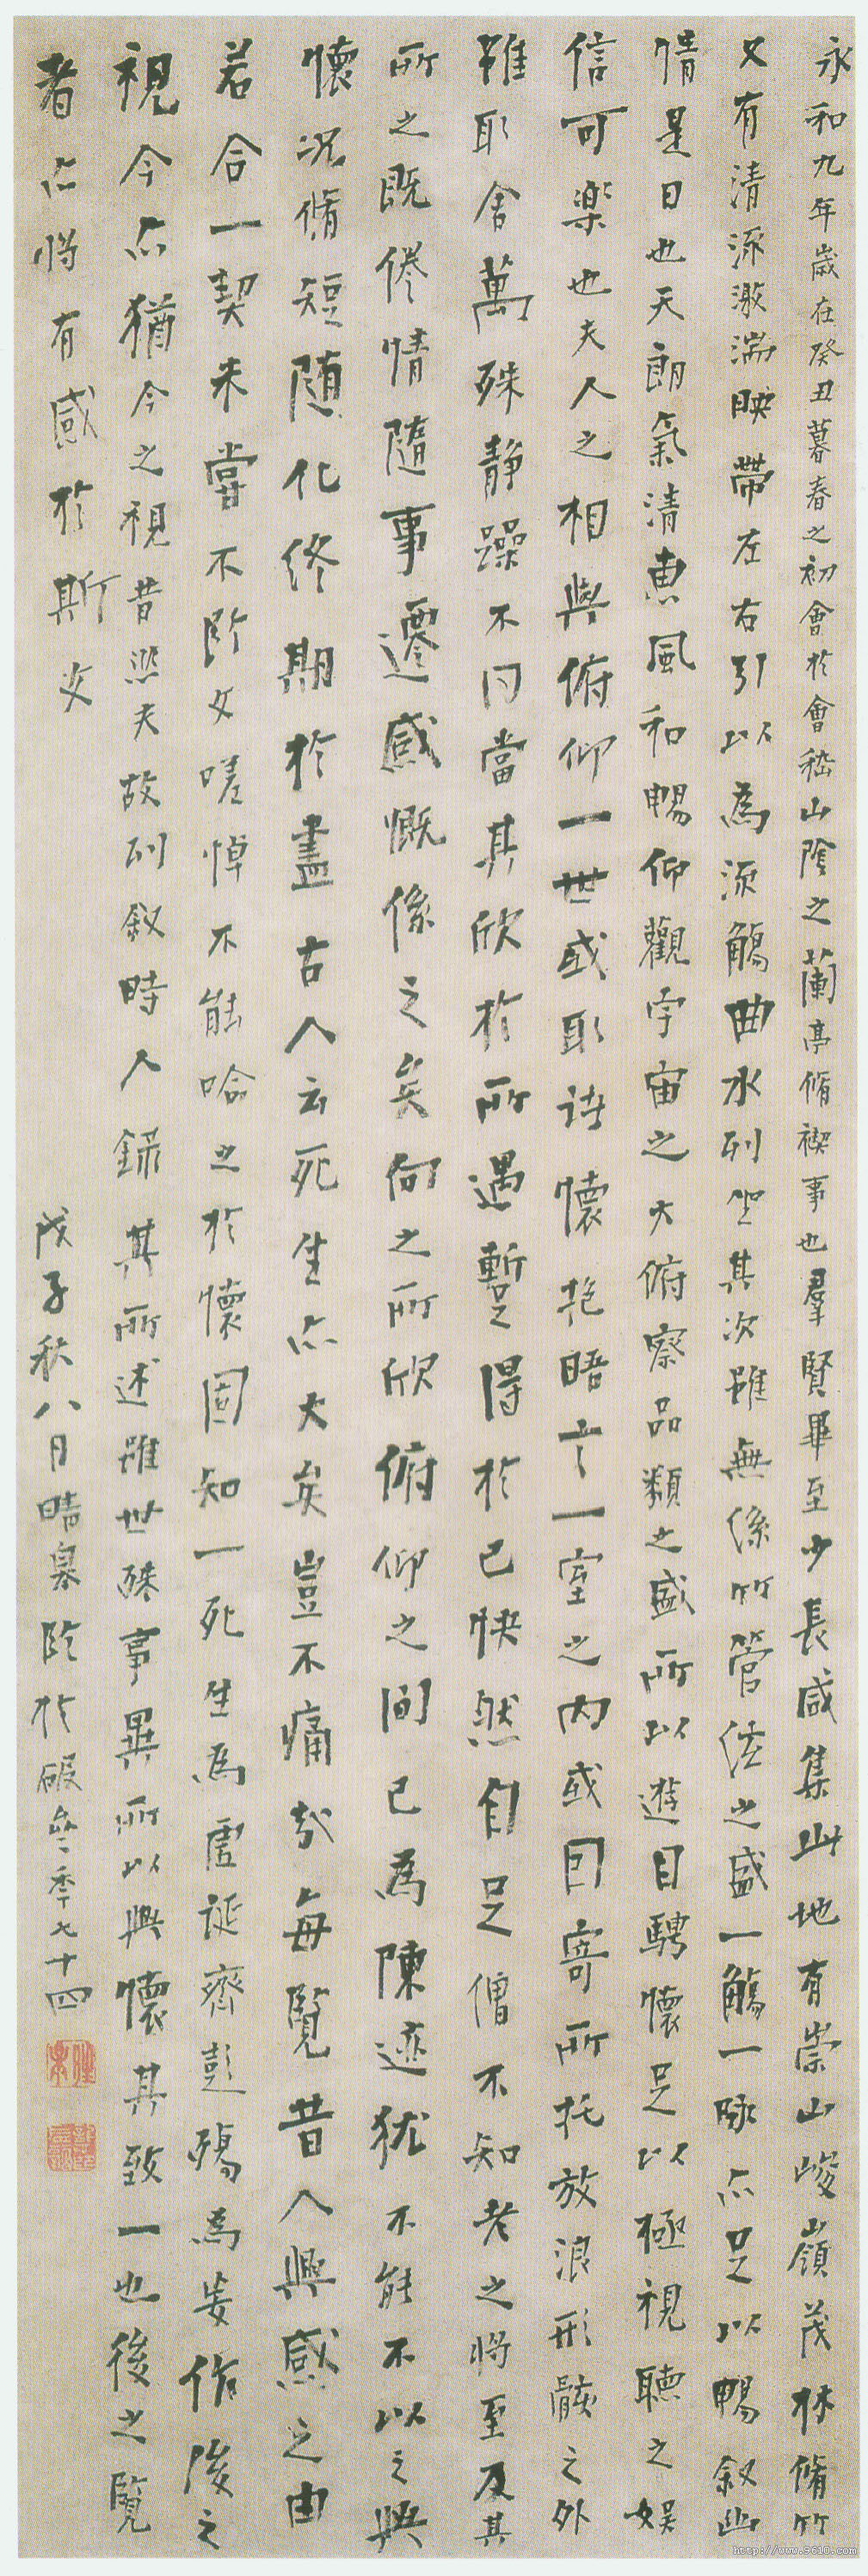 永和九年歲在癸丑暮春之初會於會嵇山陰之蘭亭脩禊事也羣賢畢至少長咸集此地有崇山峻嶺茂林脩竹
又有清流激湍映帶左右引以為流觴曲水列坐其次雖無絲竹管弦之盛一觴一詠亦足以暢敘幽
情是日也天朗氣清惠風和暢仰觀宇宙之大俯察品類之盛所以遊目騁懷足以極視聽之娛
信可樂也夫人之相與俯仰一世或取諸懷抱晤言一室之內或因寄所托放浪形骸之外
雖取舍萬殊靜躁不同當其欣於所遇暫得於己快然自足僧不知老之將至及其
所之既倦情隨事遷感慨係之矣向之所欣俯仰之間已為陳迹猶不能不以之興
懷況脩短隨化終期於盡古人云死生亦大矣豈不痛哉每覽昔人興感之由
若合一契未嘗不臨文嗟悼不能喻之於懷固知一死生為虛誕齊彭殤為妄作後之
視今亦猶今之視昔悲夫故列敘時人錄其所述雖世殊事異所以興懷其致一也後之覽
者亦將有感於斯文
戊子秋八月晴皋臨於季七十四
http://www.9610.com